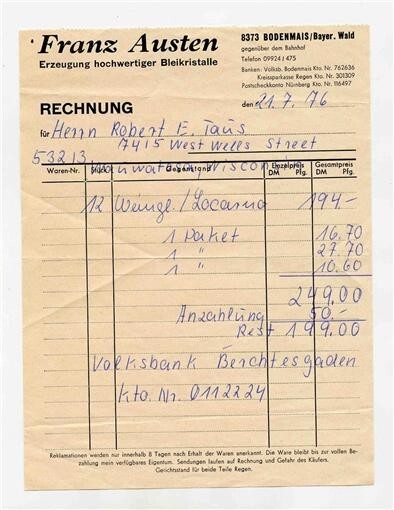 Franz Austen
Erzeugung hochwertiger Bleikristalle
8373 BODENMAIS/Bayer. Wald
gegenüber dem Bahnhof
Telefon 09924/475
Banken: Volksb. Bodenmais Kto Nr. 762636
Kreissparkasse Regen Kto. Nr. 301309
Postscheckkonto Nürnberg Kto Nr. 116497
RECHNUNG
den 21. 7. 76
für Herrn Robert E. Taus
7415 West Wells Street
53213 Wauwatosa, Wisconsin
Waren-Nr. Stück Gegenstand Einzelpreis DM Pfg. Gesamtpreis DM Pfg.
12 Weingl./Locarno 194.-
1 Paket 16.70
1 " 27.70
1 " 10.60
249.00
Anzahlung 50.-
Rest 199.00
Volksbank Berchtesgaden
Kto. Nr. 0112224
Reklamationen werden nur innerhalb 8 Tagen nach Erhalt der Waren anerkannt. Die Ware bleibt bis zur vollen Be-
zahlung mein verfügbares Eigentum. Sendungen laufen auf Rechnung und Gefahr des Käufers.
Gerichtsstand für beide Teile Regen.